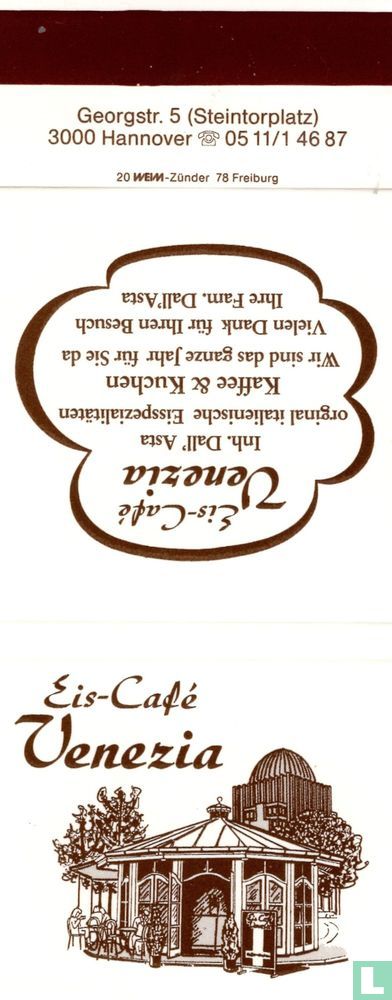 Georgstr. 5 (Steintorplatz)
3000 Hannover ☏ 05 11/1 46 87
20 WEIM-Zünder 78 Freiburg
Eis-Café
Venezia
Inh. Dall' Asta
orginal italienische Eisspezialitäten
Kaffee & Kuchen
Wir sind das ganze Jahr für Sie da
Vielen Dank für Ihren Besuch
Ihre Fam. Dall'Asta
Eis-Café
Venezia